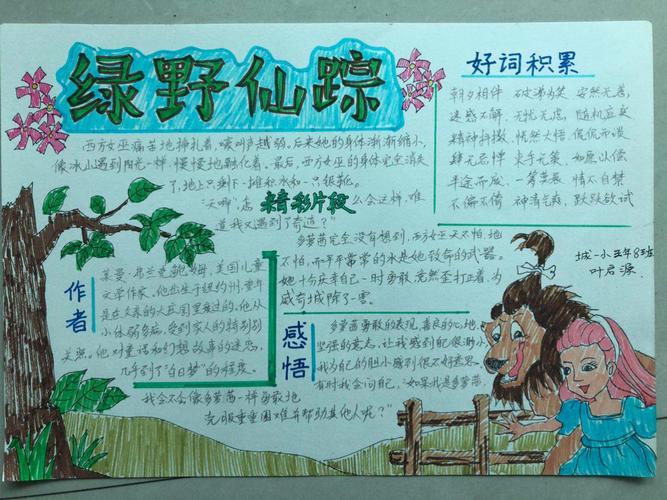 绿野仙踪
西方女巫痛苦地挣扎着,喊叫声越弱,后来她的身体渐渐缩小,
像冰山遇到阳光一样,慢慢地融化着。最后,西方女巫的身体完全消失
了,地上只剩下一摊积水和一只银靴。
“天哪!怎么会这样,难
道我又遇到了奇迹?”
精彩片段
多萝茜完全没有想到,西方女巫天不怕,地
不怕,而平平常常的水是她致命的武器。
她十分庆幸自己一时勇敢,竟然歪打正着,为
威奇城除了一害。
好词积累
朝夕相伴 破涕为笑 安然无恙
迷惑不解 无忧无虑 随机应变
精神抖擞 恍然大悟 侃侃而谈
肆无忌惮 束手无策 如愿以偿
半途而废 一筹莫展 情不自禁
不偏不倚 神清气爽 跃跃欲试
城一小五年8班
叶启源
作者
莱曼·弗兰克·鲍姆,美国儿童
文学作家。他出生于纽约州,童年
是在父亲的大庄园里度过的。他从
小体弱多病,受到家人的特别
关照。他对童话和幻想故事的迷恋,
几乎到了“白日梦”的程度。
感悟
多萝茜勇敢的表现,善良的心地,
坚强的意志,让我感到自己很渺小,
我为自己的胆小感到很不好意思。
有时我会问自己,“如果我是多萝茜,
我会不会像多萝茜一样勇敢地
克服重重困难并帮助其他人呢?”